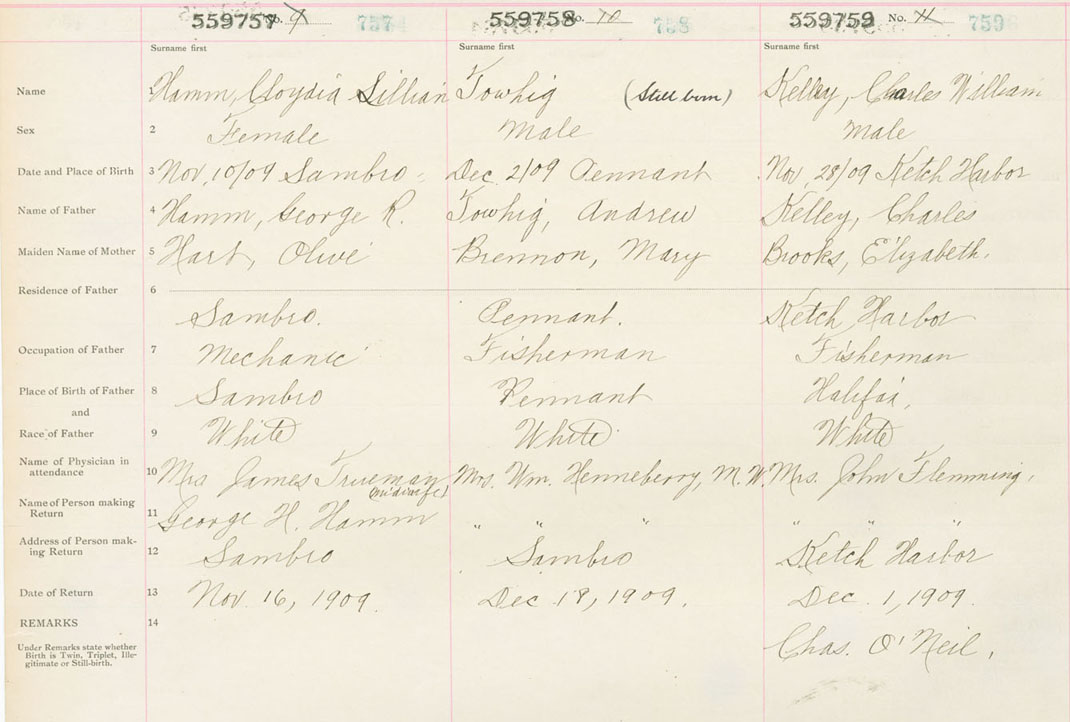 559757 No. 9 757 559758 No. 10 758 559759 No. 11 759
Surname first Surname first Surname first
Name 1 Hamm, Cloydia Lillian Towhig (Still born) Kelley, Charles William
Sex 2 Female Male Male
Date and Place of Birth 3 Nov, 10/09 Sambro Dec. 2/09 Pennant Nov, 28/09 Ketch Harbor
Name of Father 4 Hamm, George R. Towhig, Andrew Kelley, Charles
Maiden Name of Mother 5 Hart, Olive Brennon, Mary Brooks, Elizabeth.
Residence of Father 6
Sambro. Pennant. Ketch Harbor
Occupation of Father 7 Mechanic Fisherman Fisherman
Place of Birth of Father 8 Sambro Pennant Halifax,
and
Race of Father 9 White White White
Name of Physician in
attendance 10 Mrs James Trueman Mrs. Wm. Henneberry, M. W. Mrs. John Flemming,
(midwife)
Name of Person making
Return 11 George H. Hamm " " " " " "
Address of Person mak-
ing Return 12 Sambro Sambro Ketch Harbor
Date of Return 13 Nov. 16, 1909. Dec. 18, 1909. Dec. 1, 1909.
REMARKS 14
Under Remarks state whether
Birth is Twin, Triplet, Ille-
gitimate or Still-birth.
Chas. O'Neil,